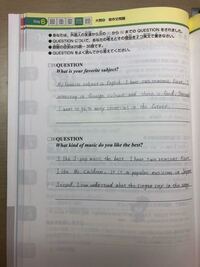 6
● あなたは、外国人の知り合いから以下のQUESTIONをされました。
● QUESTIONについて、あなたの考えとその理由を2つ英文で書きなさい。
● 語数の目安は25語〜35語です。
QUESTION
What is your favorite subject?
My favorite subject is English. I have two reasons. First, I
interesting in foreign culture and
I want to go to many countries in the future.
QUESTION
What kind of music do you like the best?
I like J-pop music the best. I have two reasons. First,
I like Mr. Children. It is a popular musician in Japan.
Second, I can understand what the singer say in the song.